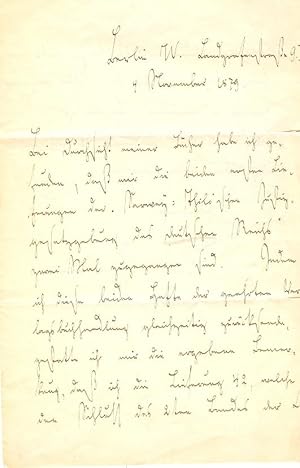 Berlin W. Landgrafenstraße 9.I
4 November 1879.
Bei Durchsicht meiner Bücher habe ich ge-
funden, daß mir die beiden ersten Lie-
ferungen der
gesetzgebung des deutschen Reichs"
zwei Mal zugegangen sind. Indem
ich diese beiden Hefte der geehrten Ver-
lagsbuchhandlung gleichzeitig zurücksende,
gestatte ich mir die ergebene Bemer-
kung, daß ich die Lieferung 42, welche
den Schluß des 2ten Bandes der